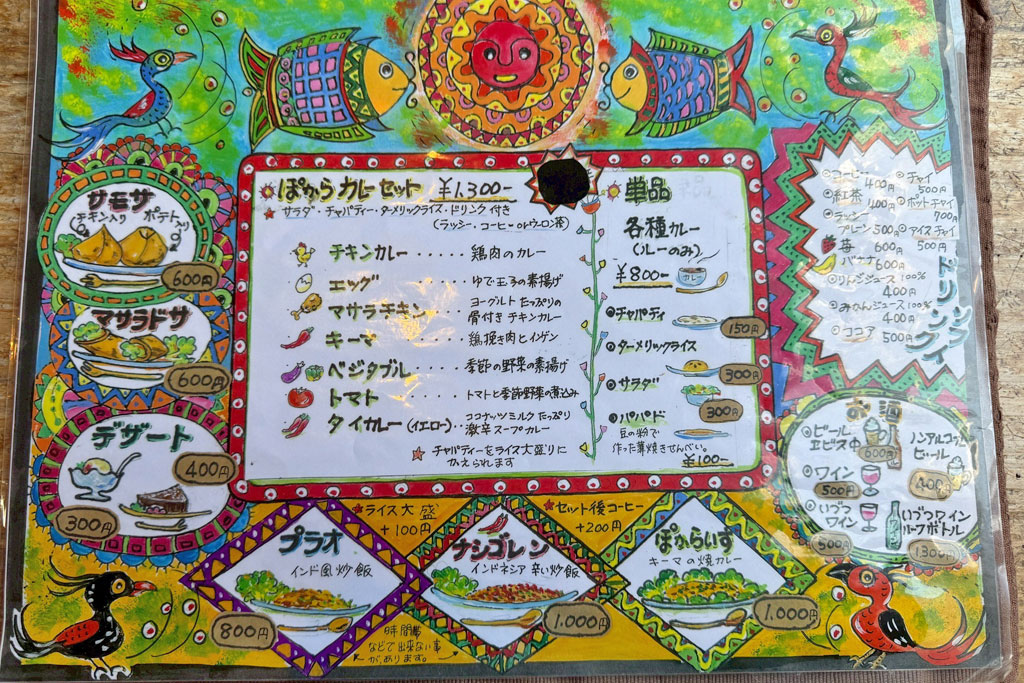 サモサ
チキン入り ポテト入り
600円
マサラドサ
600円
デザート
400円
300円
ぽからカレーセット ¥1.300-
サラダ・チャパティ・ターメリックライス・ドリンク付き
(ラッシー、コーヒー orウーロン茶)
チキンカレー ····· 鶏肉のカレー
エッグ ····· ゆで玉子の素揚げ
マサラチキン ヨーグルトたっぷりの
骨付きチキンカレー
キーマ ····· 鶏挽き肉とインゲン
ベジタブル ····· 季節の野菜の素揚げ
トマト ····· トマトと季節野菜の煮込み
タイカレー(イエロー)·· ココナッツミルクたっぷり
激辛スープカレー
チャパティーをライス大盛りに
かえられます
単品
各種カレー
(ルーのみ)
¥800-
チャパティ
150円
ターメリックライス
300円
サラダ
300円
パパド
豆の粉で
作った薄焼きせんべい。
¥100-
ドリンク
コーヒー 400円
紅茶 400円
ラッシー
プレーン 500円
苺 600円
バナナ 600円
りんごジュース 100%
400円
みかんジュース 100%
400円
ココア 500円
チャイ
500円
ポットチャイ
700円
アイスチャイ
500円
お酒
ビール
エビス中
600円
ノンアルコール
ビール
400円
ワイン
500円
いづつ
ワイン
500円
いづつワイン
ハーフボトル
1300円
ライス大盛
+100円
セット後コーヒー
+200円
プラオ
インド風炒飯
800円
ナシゴレン
インドネシア辛い炒飯
1.000円
ぽからいす
キーマの焼カレー
1.000円
時間帯
などで出来ない事
があります。